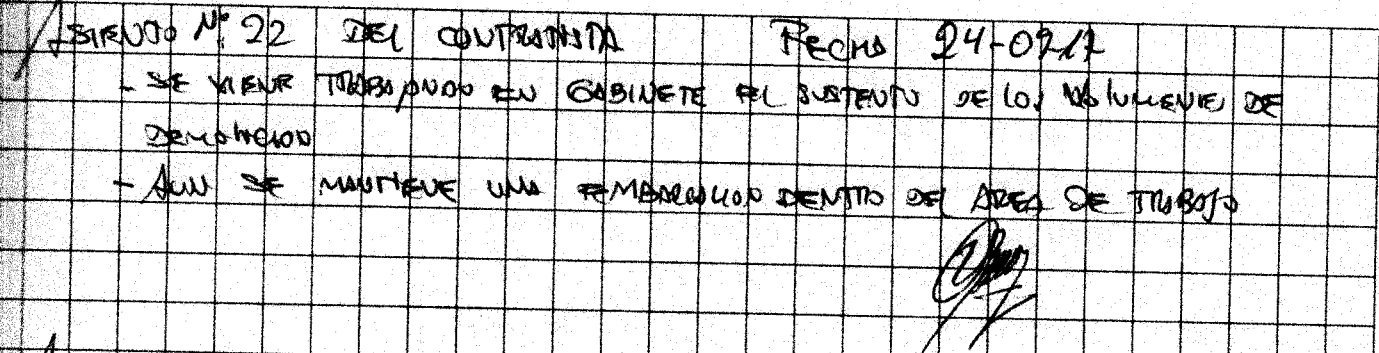 ASIENTO Nº 22 DEL CONTRATISTA FECHA 24-09-17
- SE VIENE TRABAJANDO EN GABINETE EL SUSTENTO DE LOS VOLUMENES DE
DEMOLICION
- AUN SE MANTIENE UNA EMBARCACION DENTRO DEL AREA DE TRABAJO